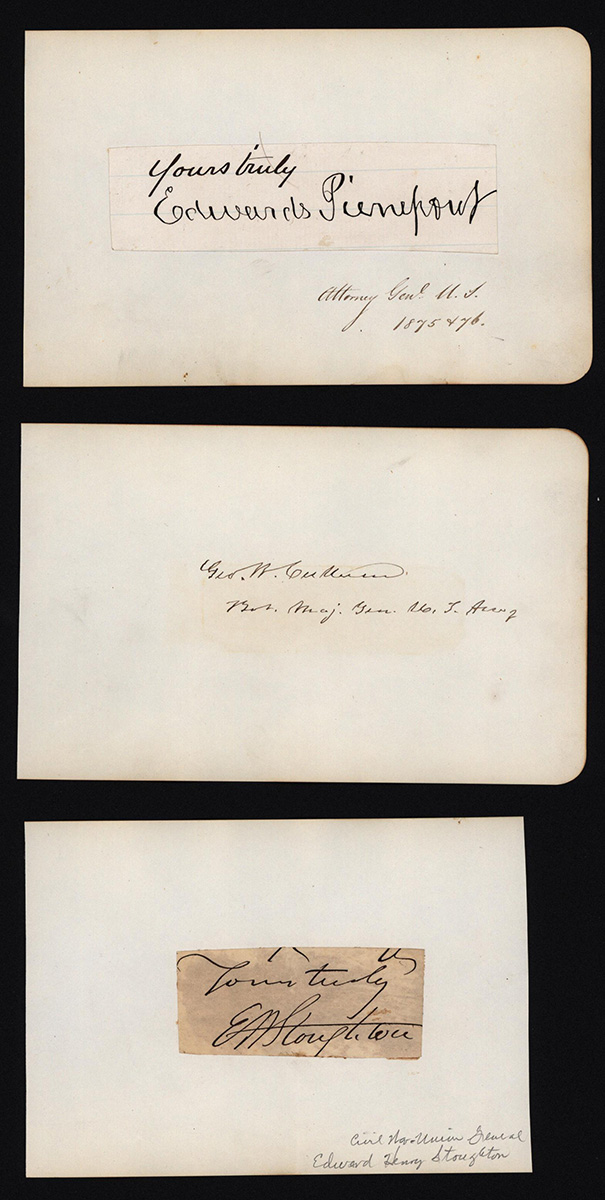 Yours truly
Edwards Pierrepont
Attorney Genl. U. S.
1875 & 76.
Geo. W. Cullum
Bvt. Maj. Gen. U. S. Army
Yours truly
E W Stoughton
Civil War-Union General
Edward Henry Stoughton